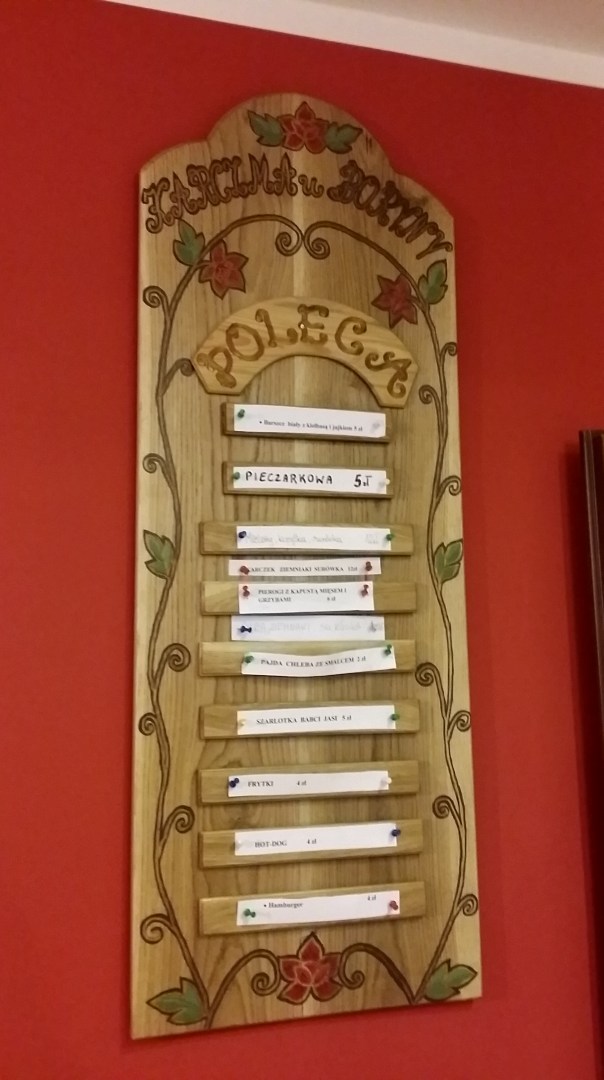 KARCZMA u BORYNY
POLECA
• Barszcz biały z kiełbasą i jajkiem 5 zł
PIECZARKOWA 5zł
KARCZEK ZIEMNIAKI SURÓWKA 12zł
PIEROGI Z KAPUSTĄ MIĘSEM I
GRZYBAMI 6 zł
PAJDA CHLEBA ZE SMALCEM 2 zł
SZARLOTKA BABCI JASI 5 zł
FRYTKI 4 zł
HOT-DOG 4 zł
• Hamburger 4 zł